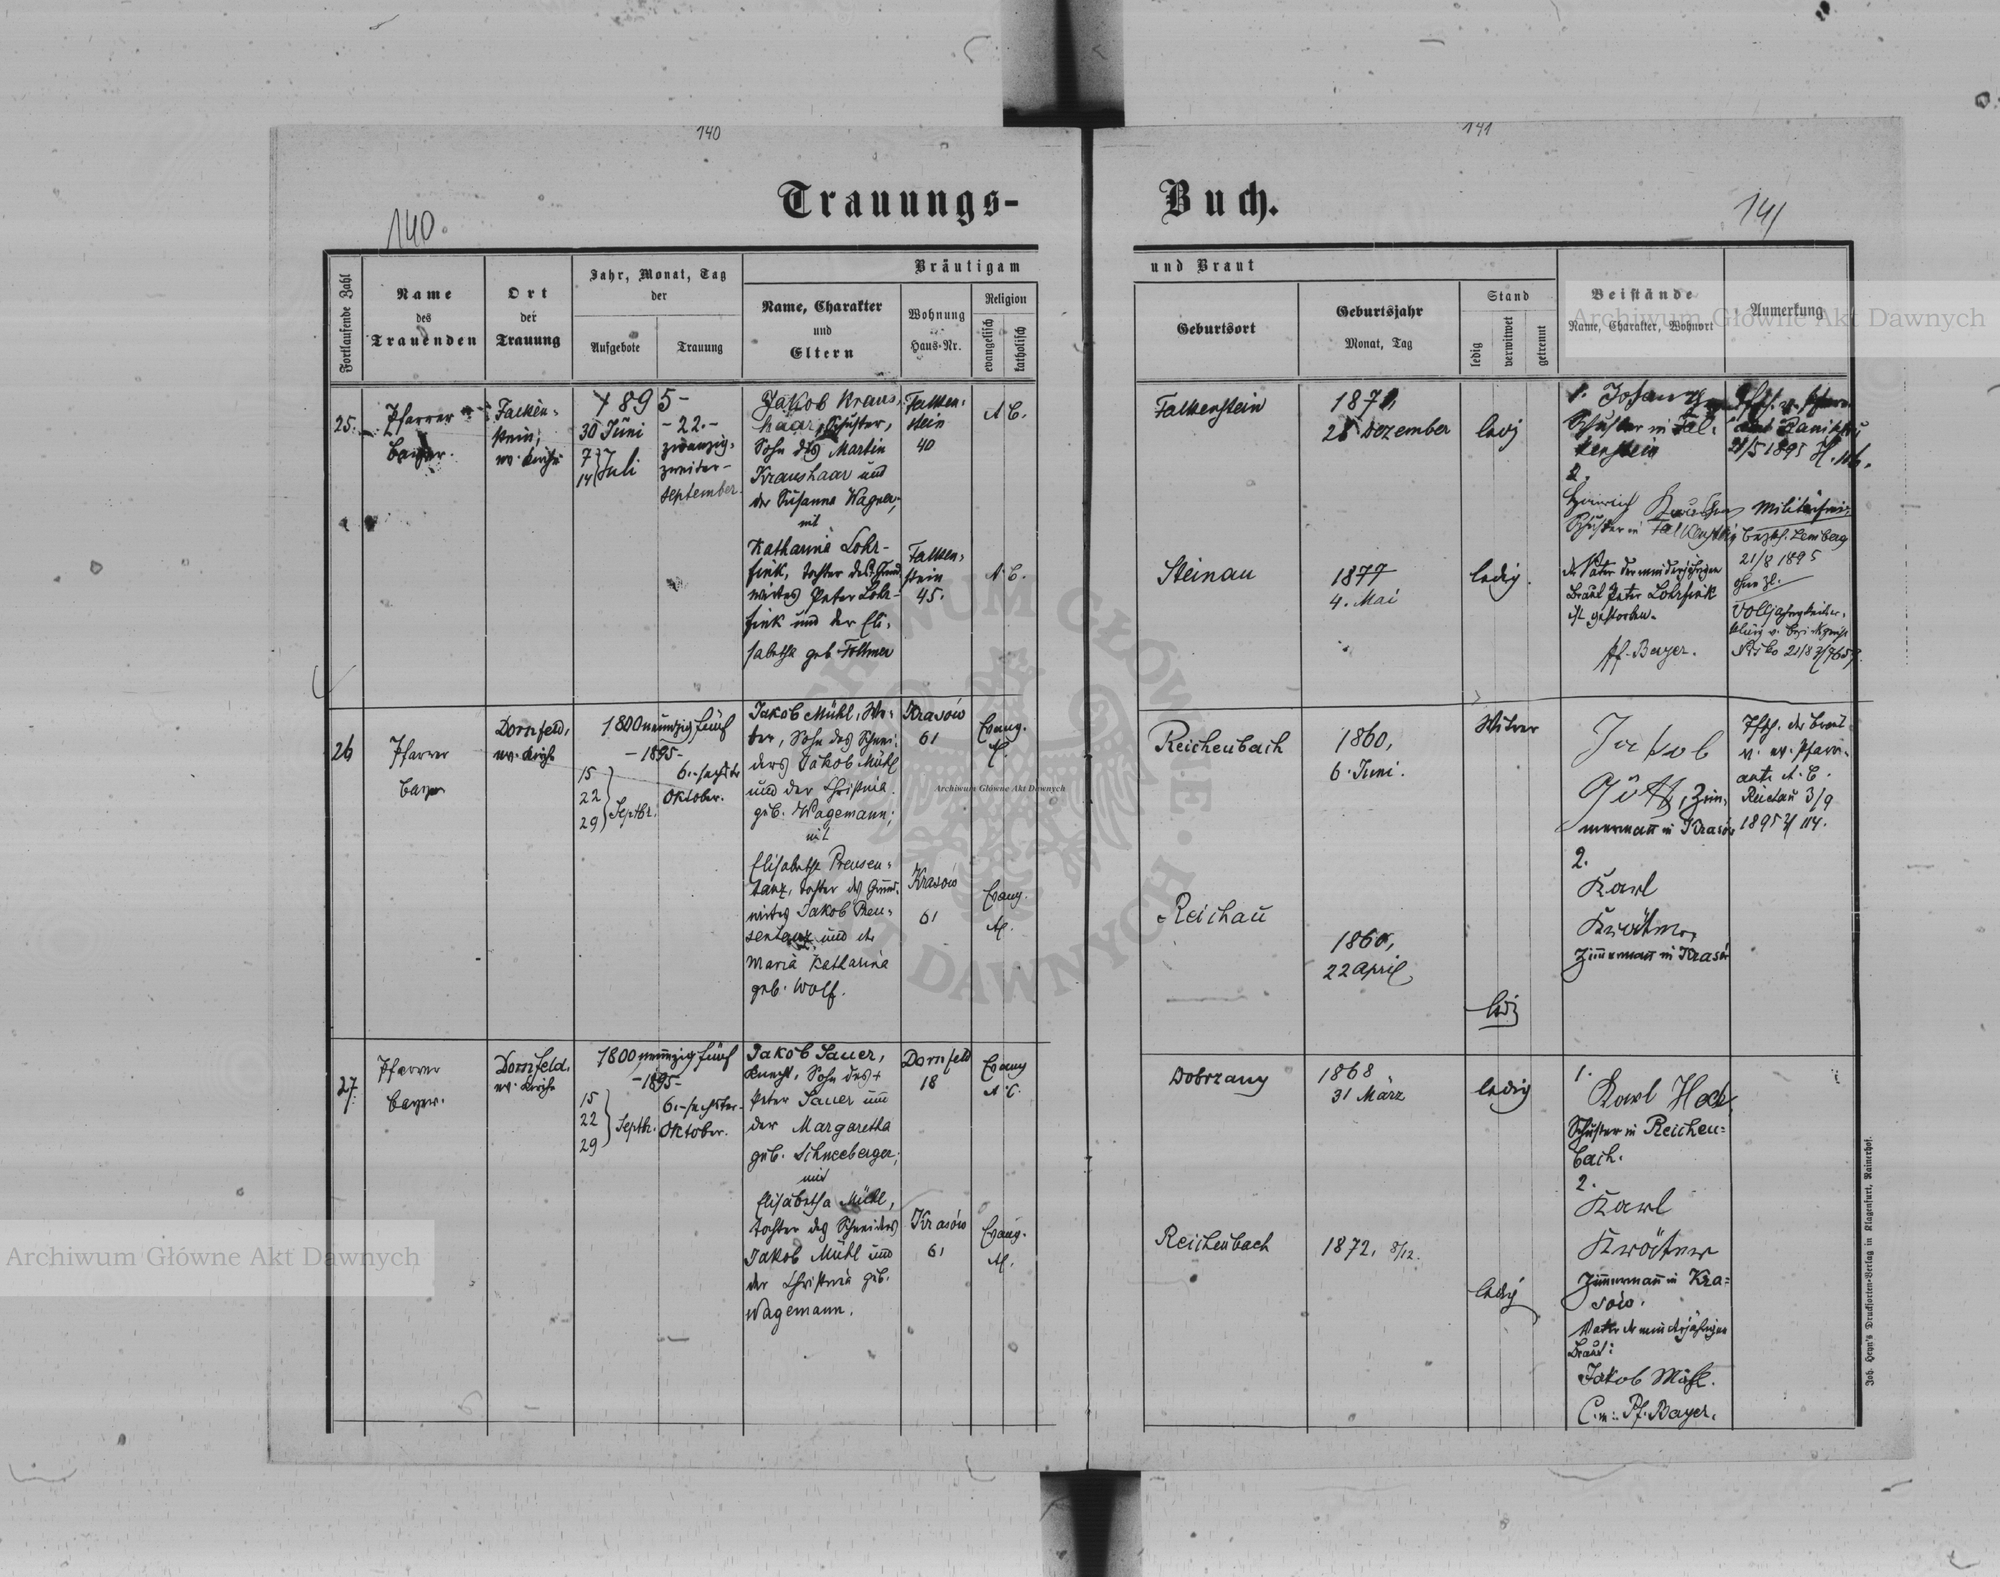 140
141
Trauungs-
Buch.
140.
141
Fortlaufende Zahl
Name
des
Trauenden
Ort
der
Trauung
Jahr, Monat, Tag
der
Aufgebote
Trauung
Bräutigam
Name, Charakter
und
Eltern
Wohnung
Haus-Nr.
Religion
evangelisch
katholisch
und Braut
Geburtsort
Geburtsjahr
Monat, Tag
Stand
ledig
verwitwet
getrennt
Beistände
Name, Charakter, Wohnort
Anmerkung
25.
Pfarrer
Falken-
stein,
ev. Kirche
1895-
30 Juni
7
14 } Juli
- 22. -
zwanzig-
zweiter-
September.
Jakob Kraus-
haar, Schuster,
Sohn des Martin
Kraushaar und
der Susanna Wagner,
mit
Katharina Lohr-
fink, Tochter des Grund
wirtes Peter Lohr-
fink und der Eli-
sabetha geb.
Falken-
stein
40
A. C.
Falken-
stein
45.
A. C.
Falkenstein
Dezember
ledig
Steinau
1877
4. Mai
ledig.
1. Johann
Schuster in Fal-
kenstein
2.
Heinrich
Schuster in Falkenstein
der Vater der minderjährigen
Braut Peter Lohrfink
ist gestorben.
Pf. Bayer.
21/5 1895
Lemberg
21/8 1895
26
Pfarrer
Bayer
Dornfeld,
ev. Kirche
1800neunzigfünf
- 1895 -
15
22
29 } Septbr.
6. - sechster
Oktober.
Jakob Mühl, We-
ber, Sohn des Schnei-
ders Jakob Mühl
und der Christina
geb. Wagemann;
mit
Elisabetha Preusen-
tanz, Tochter des Grund-
wirtes Jakob Preu-
sentanz und der
Maria Katharina
geb. Wolf.
Krasów
61
Evang.
Krasów
61
Evang.
Reichenbach
1860,
6. Juni.
Witwer
Reichau
1860,
22 April
ledig
Jakob
Zim-
mermann in Krasów
2.
Karl
Zimmermann in Krasów
Pfsch. der Braut
v. ev. Pfarr-
amte A. C.
Reichau 3/9
1895 Z 114.
27.
Pfarrer
Bayer.
Dornfeld.
ev. Kirche
1800neunzigfünf
- 1895 -
15
22
29 } Septbr.
6. - sechster -
Oktober.
Jakob Sauer,
Knecht, Sohn des +
Peter Sauer und
der Margaretha
geb. Schneeberger;
mit
Elisabetha Mühl,
Tochter des Schneiders
Jakob Mühl und
der Christina geb.
Wagemann.
Dornfeld
18
Evang
A. C.
Krasów
61
Evang.
Dobrzany
1868
31 März
ledig
Reichenbach
1872, 8/12.
ledig
1.
Karl
Schuster in Reichen-
bach.
2.
Karl
Zimmermann in Kra-
sów.
Vater der minderjährigen
Braut:
Jakob Mühl.
C. m.: Pf. Bayer.
Joh. Heyn's Drucksorten-Verlag in Klagenfurt, Rainerhof.
Archiwum Główne Akt Dawnych
Archiwum Główne Akt Dawnych
Archiwum Główne Akt Dawnych
ARCHIWUM GŁÓWNE · AKT DAWNYCH ·